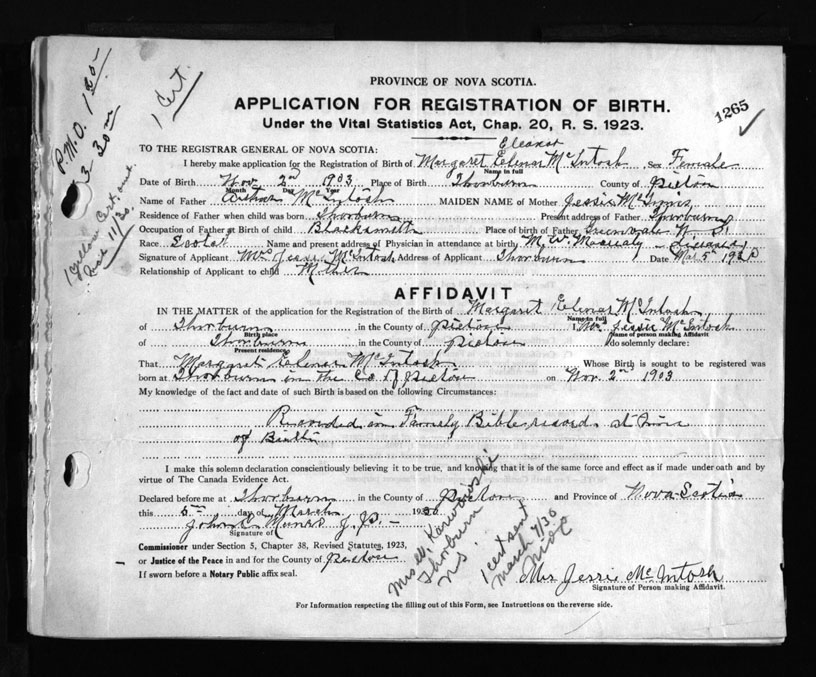 P.M.O. 1 50
3 30
1 Cert.
1265
PROVINCE OF NOVA SCOTIA.
APPLICATION FOR REGISTRATION OF BIRTH.
Under the Vital Statistics Act, Chap. 20, R. S. 1923.
TO THE REGISTRAR GENERAL OF NOVA SCOTIA:
Eleanor
I hereby make application for the Registration of Birth of Margaret Elenor McIntosh Sex Female
Name in full
Date of Birth Nov 2nd 1903 Place of Birth Thorburn County of Pictou
Month Day Year
Name of Father McIntosh MAIDEN NAME of Mother Jessie
Residence of Father when child was born Thorburn Present address of Father Thorburn
Occupation of Father at Birth of child Blacksmith Place of birth of Father N. S.
Race Scotch Name and present address of Physician in attendance at birth M. W.
Signature of Applicant Mrs Jessie McIntosh Address of Applicant Thorburn Date Mar 5th 1930
Relationship of Applicant to child Mother
AFFIDAVIT
IN THE MATTER of the application for the Registration of the Birth of Margaret Elenor McIntosh
Name in full
of Thorburn in the County of Pictou I Mrs Jessie McIntosh
Birth place Name of person making Affidavit
of Thorburn in the County of Pictou do solemnly declare:
Present residence
That Margaret Elenor McIntosh Whose Birth is sought to be registered was
born at Thorburn in the Co of Pictou on Nov. 2nd 1903
My knowledge of the fact and date of such Birth is based on the following Circumstances:
Recorded in Family Bible record at time
of Birth
I make this solemn declaration conscientiously believing it to be true, and knowing that it is of the same force and effect as if made under oath and by
virtue of The Canada Evidence Act.
Declared before me at Thorburn in the County of Pictou and Province of Nova Scotia
this 5th day of March 1930
John C. Munro J. P.
Signature of
Commissioner under Section 5, Chapter 38, Revised Statutes, 1923,
or Justice of the Peace in and for the County of Pictou
If sworn before a Notary Public affix seal.
Mrs W.
Thorburn
N S
1 cert sent
March 7/30
Mrs Jessie McIntosh
Signature of Person making Affidavit.
For Information respecting the filling out of this Form, see Instructions on the reverse side.